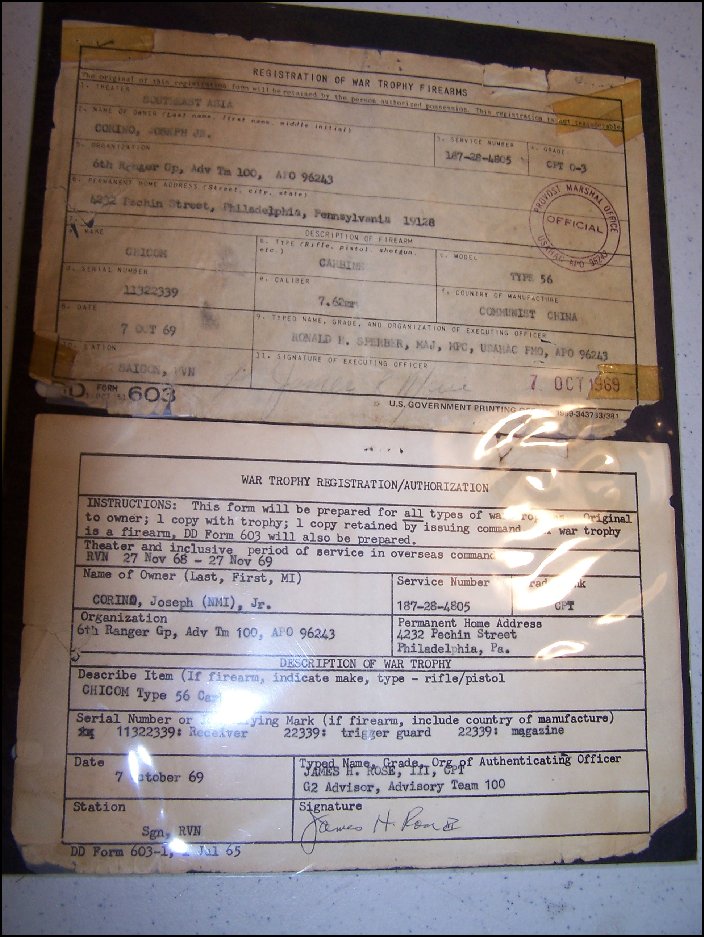 REGISTRATION OF WAR TROPHY FIREARMS
The original of this registration form will be retained by the person authorized possession. This registration is not transferable.
1. THEATER
SOUTHEAST ASIA
2. NAME OF OWNER (Last name, first name, middle initial)
CORINO, JOSEPH JR.
3. SERVICE NUMBER
187-28-4805
4. GRADE
CPT O-3
5. ORGANIZATION
6th Ranger Gp, Adv Tm 100, APO 96243
6. PERMANENT HOME ADDRESS (Street, city, state)
4232 Pechin Street, Philadelphia, Pennsylvania 19128
PROVOST MARSHAL OFFICE
OFFICIAL
USAHAC APO 96243
DESCRIPTION OF FIREARM
NAME
CHICOM
b. TYPE (Rifle, pistol, shotgun, etc.)
CARBINE
c. MODEL
TYPE 56
d. SERIAL NUMBER
11322339
e. CALIBER
7.62mm
f. COUNTRY OF MANUFACTURE
COMMUNIST CHINA
DATE
7 OCT 69
9. TYPED NAME, GRADE, AND ORGANIZATION OF EXECUTING OFFICER
RONALD H. SPERBER, MAJ, MPC, USAHAC PMO, APO 96243
STATION
SAIGON, RVN
11. SIGNATURE OF EXECUTING OFFICER
7 OCT 1969
FORM 603
U.S. GOVERNMENT PRINTING
WAR TROPHY REGISTRATION/AUTHORIZATION
INSTRUCTIONS: This form will be prepared for all types of war Original
to owner; 1 copy with trophy; 1 copy retained by issuing command war trophy
is a firearm, DD Form 603 will also be prepared.
Theater and inclusive period of service in overseas command
RVN 27 Nov 68 - 27 Nov 69
Name of Owner (Last, First, MI)
CORINO, Joseph (NMI), Jr.
Service Number
187-28-4805
CPT
Organization
6th Ranger Gp, Adv Tm 100, APO 96243
Permanent Home Address
4232 Pechin Street
Philadelphia, Pa.
DESCRIPTION OF WAR TROPHY
Describe Item (If firearm, indicate make, type - rifle/pistol
CHICOM Type 56
Serial Number or Mark (if firearm, include country of manufacture)
11322339: Receiver 22339: trigger guard 22339: magazine
Date
7 October 69
Typed Name, Grade, Org of Authenticating Officer
JAMES H. ROSE, III, CPT
G2 Advisor, Advisory Team 100
Station
Sgn, RVN
Signature
James H Rose III
DD Form 603-1, 1 Jul 65